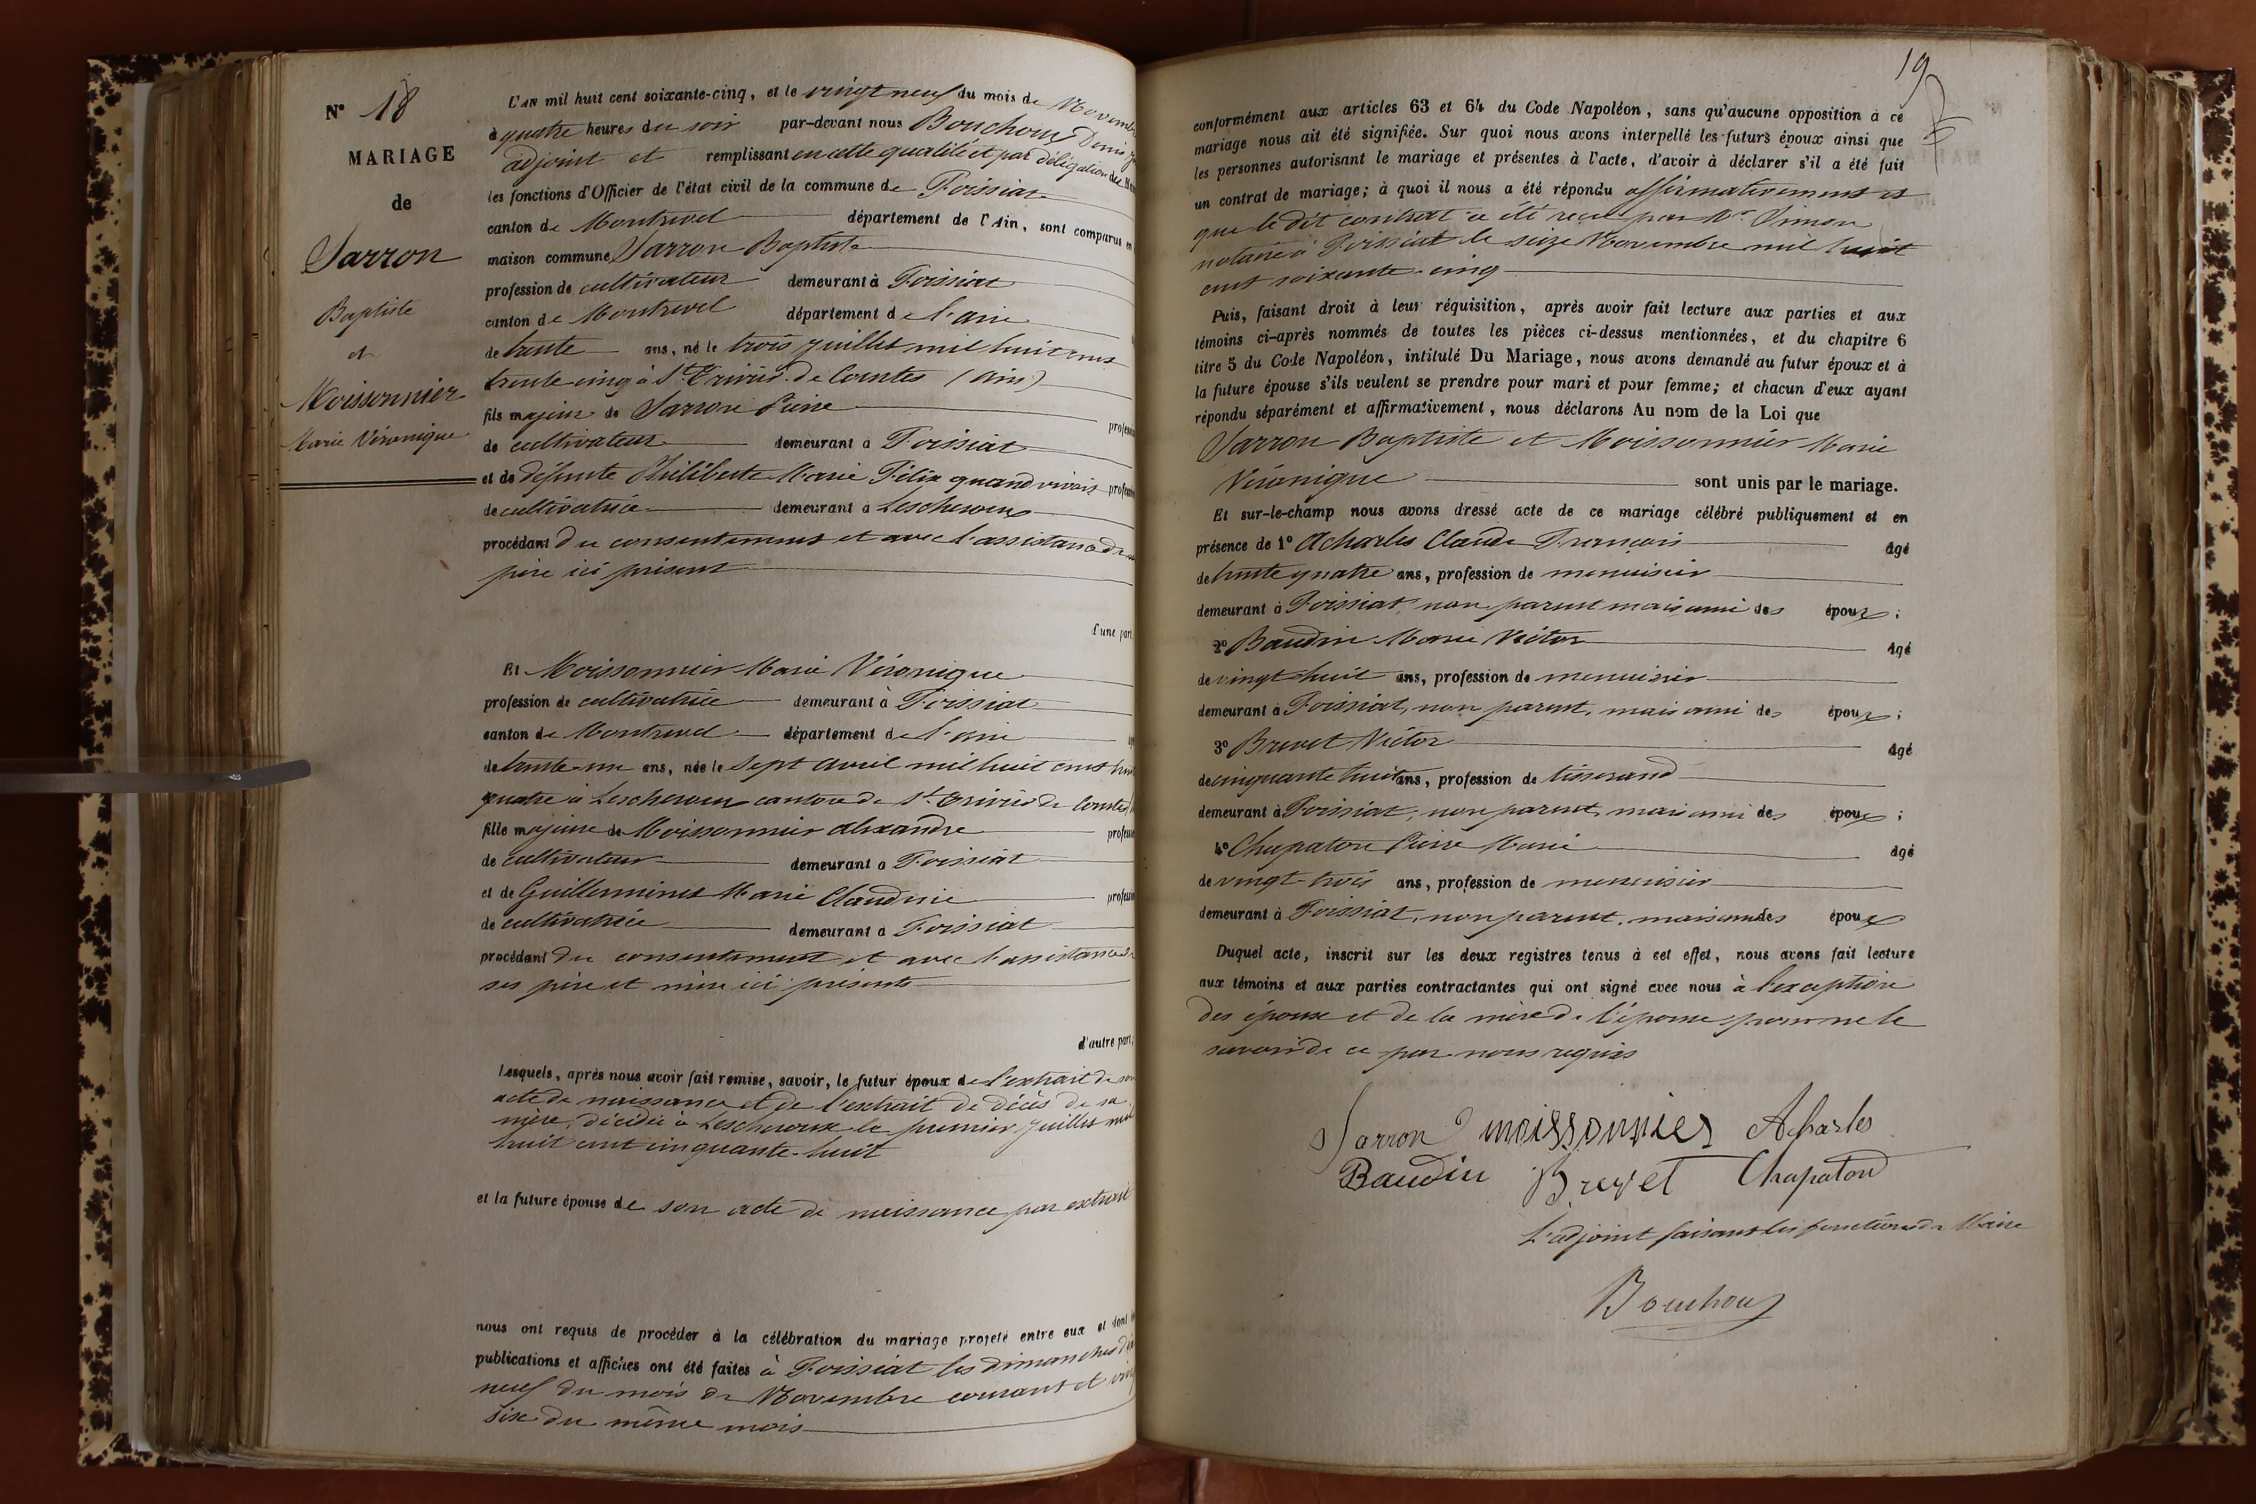 N° 18
MARIAGE
de
Sarron
Baptiste
et
Moissonnier
Marie Véronique
L'AN mil huit cent soixante-cinq, et le vingt neuf du mois de Novembre
à quatre heures du soir par-devant nous Bouchoux Denis
adjoint et remplissant en cette qualité et par délégation du Maire
les fonctions d'Officier de l'état civil de la commune de Foissiat
canton de Montrevel département de l'Ain, sont comparus en
maison commune Sarron Baptiste
profession de cultivateur demeurant à Foissiat
canton de Montrevel département de l'ain
de trente ans, né le trois juillet mil huit cent
trente cinq à St Trivier de Courtes (Ain)
fils majeur de Sarron Pierre profession
de cultivateur demeurant à Foissiat
et de défunte Philiberte Marie Félix quand vivait profession
de cultivatrice demeurant à Lescheroux
procédant du consentement et avec l'assistance de son
père ici présent
d'une part.
Et Moissonnier Marie Véronique
profession de cultivatrice demeurant à Foissiat
canton de Montrevel département de l'ain
de trente un ans, née le Sept avril mil huit cent trente
quatre à Lescheroux canton de St Trivier de Courtes
fille majeure de Moissonnier Alexandre profession
de cultivateur demeurant à Foissiat
et de Guilleminet Marie Claudine profession
de cultivatrice demeurant à Foissiat
procédant du consentement et avec l'assistance de
ses père et mère ici présents
d'autre part,
Lesquels, après nous avoir fait remise, savoir, le futur époux de l'extrait de son
acte de naissance et de l'extrait de décès de sa
mère, décédée à Lescheroux le premier juillet mil
huit cent cinquante-huit
et la future épouse de son acte de naissance par extrait
nous ont requis de procéder à la célébration du mariage projeté entre eux et dont les
publications et affiches ont été faites à Foissiat les dimanches dix
neuf du mois de Novembre courant et vingt
six du même mois
19
conformément aux articles 63 et 64 du Code Napoléon, sans qu'aucune opposition à ce
mariage nous ait été signifiée. Sur quoi nous avons interpellé les futurs époux ainsi que
les personnes autorisant le mariage et présentes à l'acte, d'avoir à déclarer s'il a été fait
un contrat de mariage; à quoi il nous a été répondu affirmativement et
que le dit contrat a été reçu par Me Simon
notaire à Foissiat le seize Novembre mil huit
cent soixante-cinq
Puis, faisant droit à leur réquisition, après avoir fait lecture aux parties et aux
témoins ci-après nommés de toutes les pièces ci-dessus mentionnées, et du chapitre 6
titre 5 du Code Napoléon, intitulé Du Mariage, nous avons demandé au futur époux et à
la future épouse s'ils veulent se prendre pour mari et pour femme; et chacun d'eux ayant
répondu séparément et affirmativement, nous déclarons Au nom de la Loi que
Sarron Baptiste et Moissonnier Marie
Véronique sont unis par le mariage.
Et sur-le-champ nous avons dressé acte de ce mariage célébré publiquement et en
présence de 1° Acharles Claude François âgé
de trente quatre ans, profession de menuisier
demeurant à Foissiat, non parent mais ami des époux;
2° Baudin Marie Victor âgé
de vingt huit ans, profession de menuisier
demeurant à Foissiat, non parent, mais ami des époux;
3° Brevet Victor âgé
de cinquante huit ans, profession de tisserand
demeurant à Foissiat, non parent, mais ami des époux;
4° Chapaton Pierre Marie âgé
de vingt-trois ans, profession de menuisier
demeurant à Foissiat, non parent, mais ami des époux
Duquel acte, inscrit sur les deux registres tenus à cet effet, nous avons fait lecture
aux témoins et aux parties contractantes qui ont signé avec nous à l'exception
des époux et de la mère de l'épouse pour ne le
savoir de ce par nous requis
Sarron moissonnier Acharles
Baudin Brevet Chapaton
L'adjoint faisant les fonctions de Maire
Bouchoux